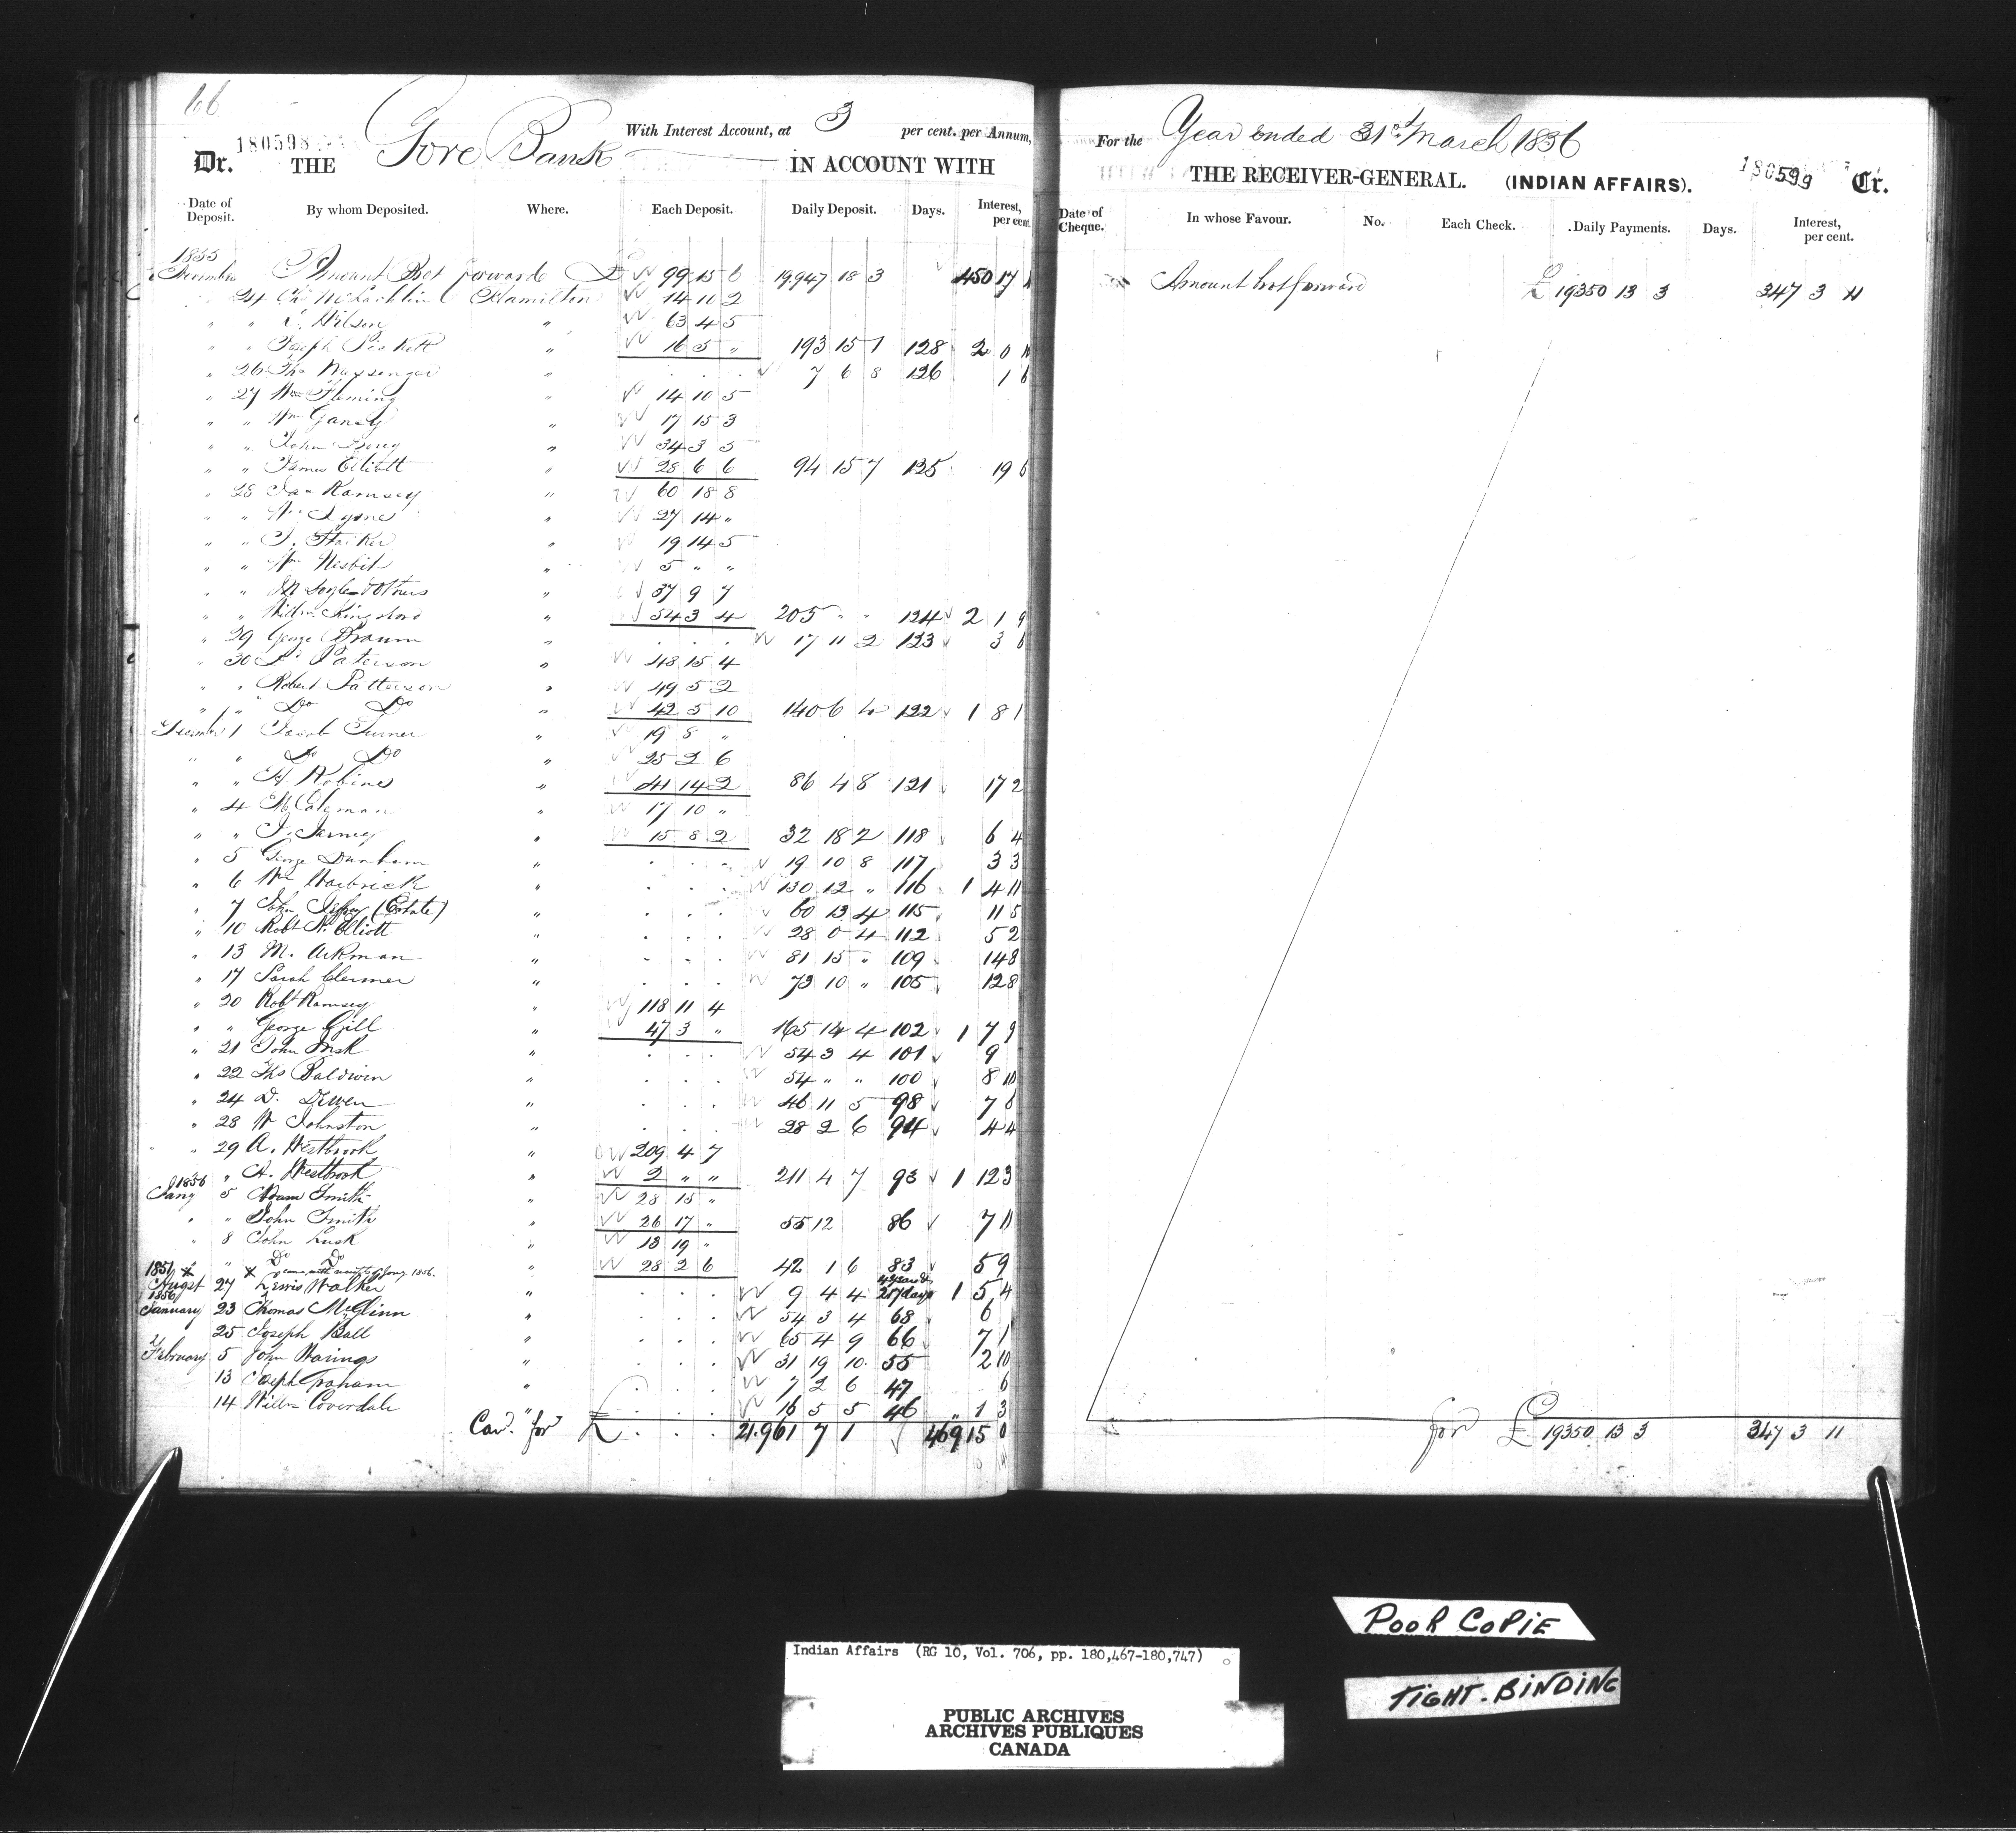 66
180598
Gore Bank With Interest Account, at 3 per cent. per Annum,
Dr. THE IN ACCOUNT WITH
Date of Deposit. By whom Deposited. Where. Each Deposit. Daily Deposit. Days. Interest, per cent.
1855
Amount Bot forward £ 99 15 6 19,947 18 3 450 17
" 24 McLachlin Hamilton 14 10 2
" " Wilson " 63 4 5
" " Joseph " 16 5 " 193 15 1 128 2 0
" 26 Tho " 7 6 8 126 1 6
" 27 Wm Fleming " 14 10 5
" " Wm " 17 15 3
" " John " 34 3 5
" " James Elliott " 28 6 6 94 15 7 125 19 6
" 28 Jas Ramsey " 60 18 8
" " Wm Lyons " 27 14 "
" " J. " 19 14 5
" " Wm Nesbit " 5 " "
" " & Others " 37 9 7
" " Willm Kingsford " 54 3 4 205 " " 124 2 1 9
" 29 George Braum " 17 11 2 123 3 6
" 30 Paterson " 48 15 4
" " Robert Patterson " 49 5 2
" " Do Do " 42 5 10 140 6 4 122 1 8 1
December 1 Jacob Turner " 19 8 "
" " Do Do " 25 2 6
" " H Robins " 41 14 2 86 4 8 121 17 2
" 4 " 17 10 "
" " J. " 15 8 2 32 18 2 118 6 4
" 5 George Dunham " 19 10 8 117 3 3
" 6 Wm " 130 12 " 116 1 4 11
" 7 John (Estate) " 60 13 4 115 11 5
" 10 Robt Elliott " 28 0 4 112 5 2
" 13 M. Aikman " 81 15 " 109 14 8
" 17 Sarah " 73 10 " 105 12 8
" 20 Robt Ramsey " 118 11 4
" " George Gill " 47 3 " 165 14 4 102 1 7 9
" 21 John " 54 3 4 101 9
" 22 Tho Baldwin " 54 " " 100 8 10
" 24 D. " 46 11 5 98 7 6
" 28 W Johnston " 28 2 6 94 4 4
" 29 A. Westbrook " 209 4 7
" A. Westbrook " 2 " " 211 4 7 93 1 12 3
1856
Jany 5 Adam Smith " 28 15 "
" " John Smith " 26 17 " 55 12 86 7 11
" 8 John Lusk " 13 19 "
" " Do Do " 28 2 6 42 1 6 83 5 9
1851 x x Jany 1856.
August 27 Lewis Walker " 9 4 4 217 days 1 5 4
1856
January 23 Thomas McGlinn " 54 3 4 68 6
25 Joseph Ball " 65 4 9 66 7 1
February 5 John " 31 19 10 55 2 10
13 Joseph Graham " 7 2 6 47 6
14 Willm Coverdale " 16 5 5 46 " 1 3
Card. for £ 21,961 7 1 469 15 0
For the Year ended 31st March 1856
THE RECEIVER-GENERAL. (INDIAN AFFAIRS). 180599 Cr.
Date of Cheque. In whose Favour. No. Each Check. Daily Payments. Days. Interest, per cent.
Amount brot forward £ 19350 13 3 347 3 11
for £ 19350 13 3 347 3 11
POOR COPIE
Indian Affairs (RG 10, Vol. 706, pp. 180,467-180,747)
TIGHT-BINDING
PUBLIC ARCHIVES
ARCHIVES PUBLIQUES
CANADA